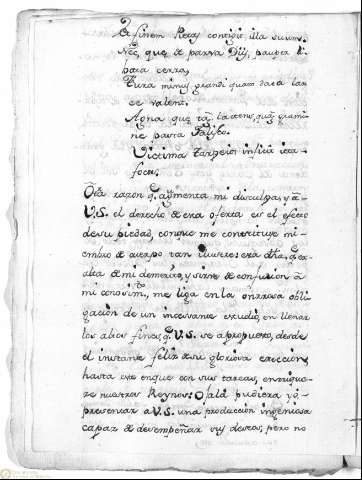 Et finem Pietas contigit illa suum.
Nec, que de parva Dijs, pauper li-
bata cerra,
Tura minus grandi quam data lan-
ce valent.
Agna que tã lactens, quã grami-
ne pasta Falisco.
Victima Tarpeios inficit icta
focos.
Otra razon q. augmenta mi disculpa, y á
V.S. el derecho de esta oferta es el efecto
de su piedad, con que me constituye mi-
embro de cuerpo tan ilustre: esta dha, q. ex-
alta de mi demerito, y sirve de confusion à
mi conosim.to, me liga en la onrrosa obli-
gación de un incessante estudio, en llenar
los altos fines, q. V.S. se a propuesto, desde
el instante feliz de su gloriosa ereccion,
hasta este en que con sus tareas, enrriqué-
ze nuestros Reynos: Ojalà pudiera yo,
presentar a V.S. una producción ingeniosa
capaz de desempeñar mis deseos, pero no